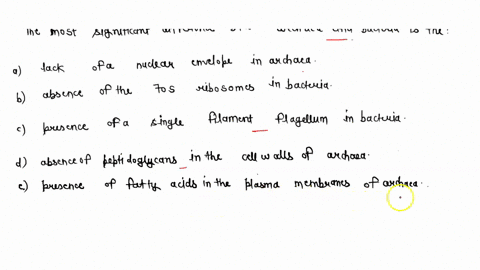 The most significant difference archaea and bacteria is the:
a) lack of a nuclear envelope in archaea.
b) absence of the 70s ribosomes in bacteria.
c) presence of a single filament flagellum in bacteria.
d) absence of peptidoglycans in the cell walls of archaea.
e) presence of fatty acids in the plasma membranes of archaea.